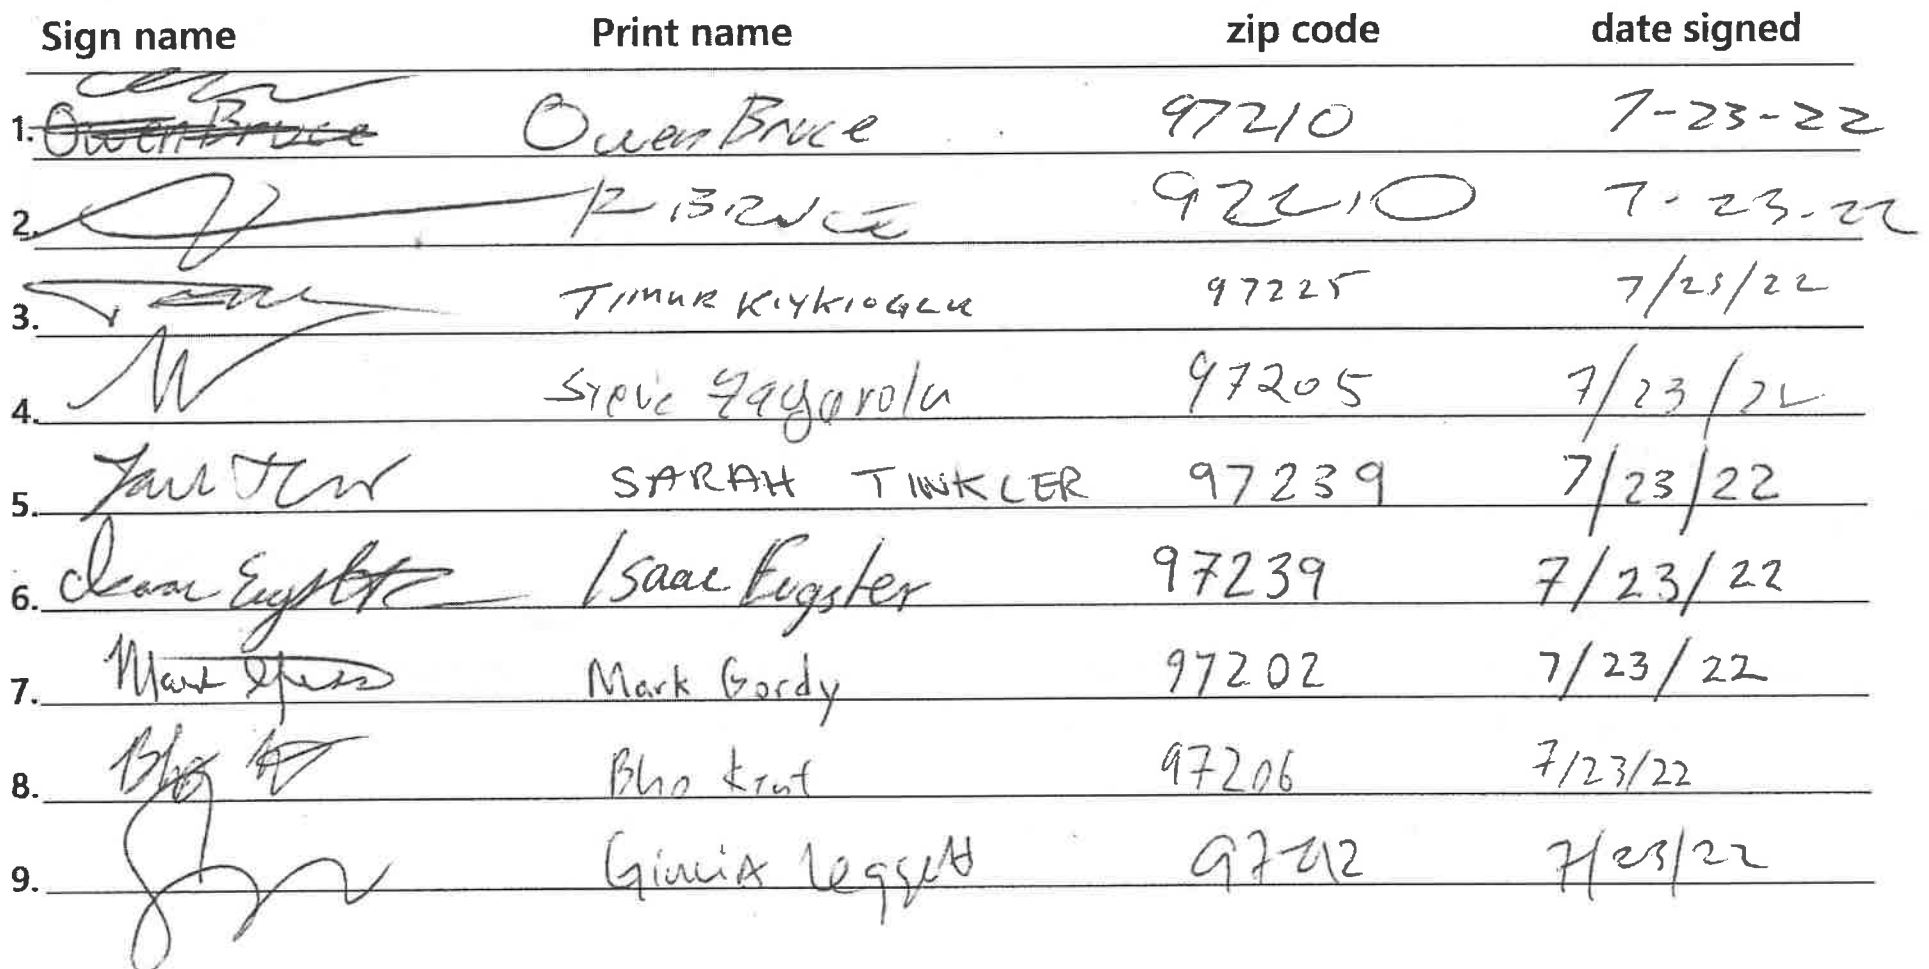 Sign name Print name zip code date signed
1. Owen Bruce Owen Bruce 97210 7-23-22
2. R BRUCE 97210 7-23-22
3. TIMUR KIYKIOGLU 97225 7/23/22
4. Steve Zagarola 97205 7/23/22
5. SARAH TINKLER 97239 7/23/22
6. Isaac Eugster Isaac Eugster 97239 7/23/22
7. Mark Gordy 97202 7/23/22
8. Bho 97206 7/23/22
9. Leggett 7/23/22